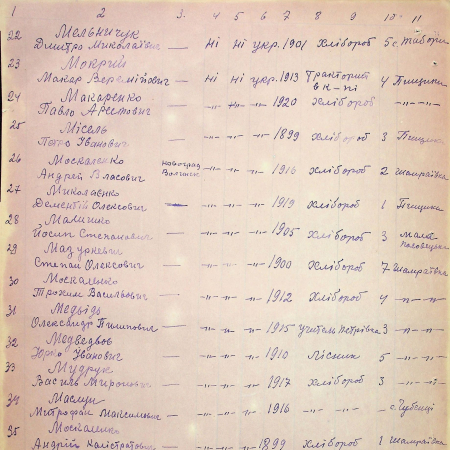 1 2 3. 4 5 6 7 8 9 10 11
22 Мельничук
Дмитро Миколайович — Ні Ні укр. 1901 Хлібороб 5 с. Табори
23 Мокрий
Макар Веремійович — Ні Ні укр. 1913 Тракторист 4 Пищики
в к-пі
24 Макаренко
Павло Арстович — -"- -"- -"- 1920 Хлібороб -"-
25 Місель
Петро Іванович — -"- -"- -"- 1899 Хлібороб 3 Пищики
26 Москаленко Новоград
Андрей Власович Волинск -"- -"- -"- 1916 Хлібороб 2 Шамраївка
27 Миколаєнко
Дементій Олексович — -"- -"- -"- 1919 Хлібороб 1 Пищики
28 Малишко
Йосип Степанович — -"- -"- -"- 1905 Хлібороб 3 Мала
Половецька
29 Мазуркевич
Степан Олексович — -"- -"- -"- 1900 Хлібороб 7 Шамраївка
30 Москаленко
Трохим Васильович — -"- -"- -"- 1912 Хлібороб 4 -"-
31 Медвідь
Олександр Пилипович — -"- -"- -"- 1915 учитель Петрівка 3 -"-
32 Медведвов
Юрко Іванович — -"- -"- -"- 1910 Лісник 5 -"-
33 Мудрук
Василь Миронович — -"- -"- -"- 1917 Хлібороб 3 -"-
34 Маслун
Митрофан Максимович — -"- -"- -"- 1916 -"- с. Чубинці
35 Москаленко
Андрій Калістратович — -"- -"- -"- 1899 Хлібороб 1 Шамраївка